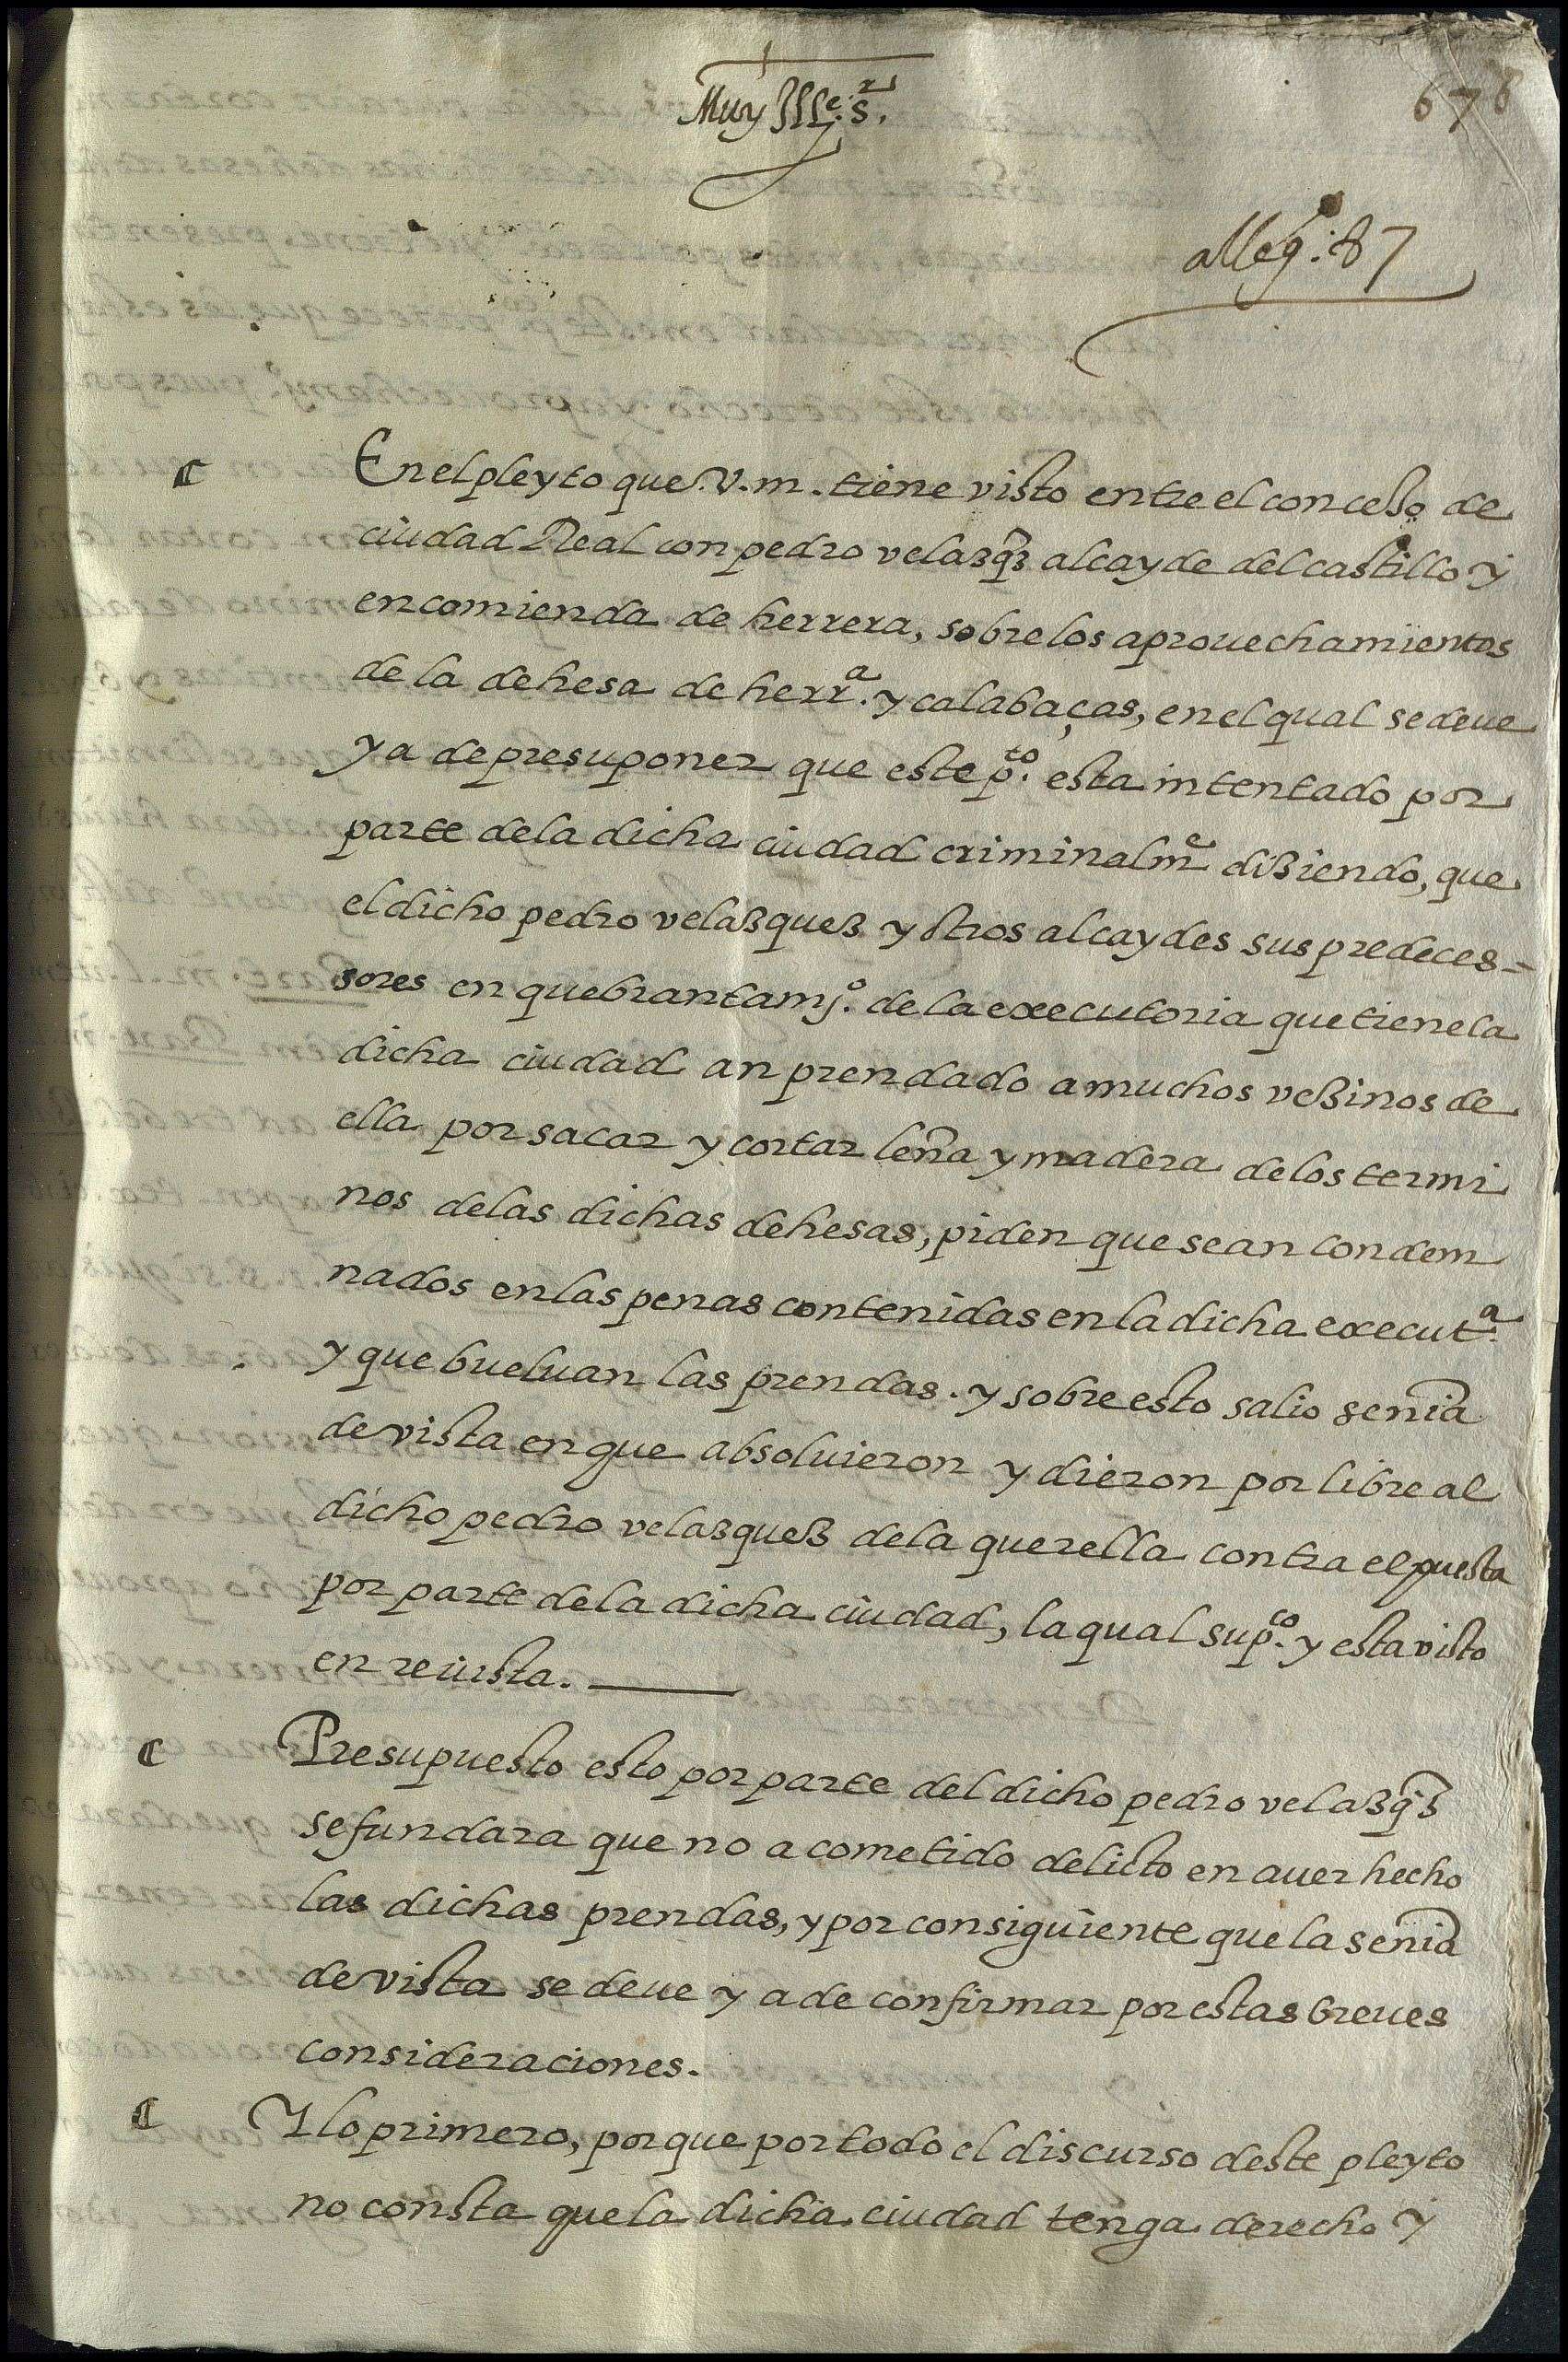 Muy Illᵉ. Sʳ.
678
alleg: 87
En el pleyto que .V.m. tiene visto entre el concejo de
ciudad Real con pedro velazqz alcayde del castillo y
encomienda de herrera, sobre los aprouechamientos
de la dehesa de herrᵃ. y calabaças, en el qual se deue
y a de presuponer que este pᵗᵒ. esta intentado por
parte de la dicha ciudad criminalmᵉ diziendo, que
el dicho pedro velazquez y otros alcaydes sus predeces=
sores en quebrantamjᵒ. de la executoria que tiene la
dicha ciudad an prendado a muchos vezinos de
ella por sacar y cortar leña y madera de los termi
nos de las dichas dehesas, piden que sean condem
nados en las penas contenidas en la dicha executᵃ.
y que bueluan las prendas. y sobre esto salio senia
de vista en que absoluieron y dieron por libre al
dicho pedro velazquez de la querella contra el puesta
por parte de la dicha ciudad, la qual supᶜᵒ. y esta visto
en reuista.
Presupuesto esto por parte del dicho pedro velazqz
se fundara que no a cometido delicto en auer hecho
las dichas prendas, y por consiguiente que la senia
de vista se deue y a de confirmar por estas breues
consideraciones.
Y lo primero, porque por todo el discurso deste pleyto
no consta que la dicha ciudad tenga derecho y